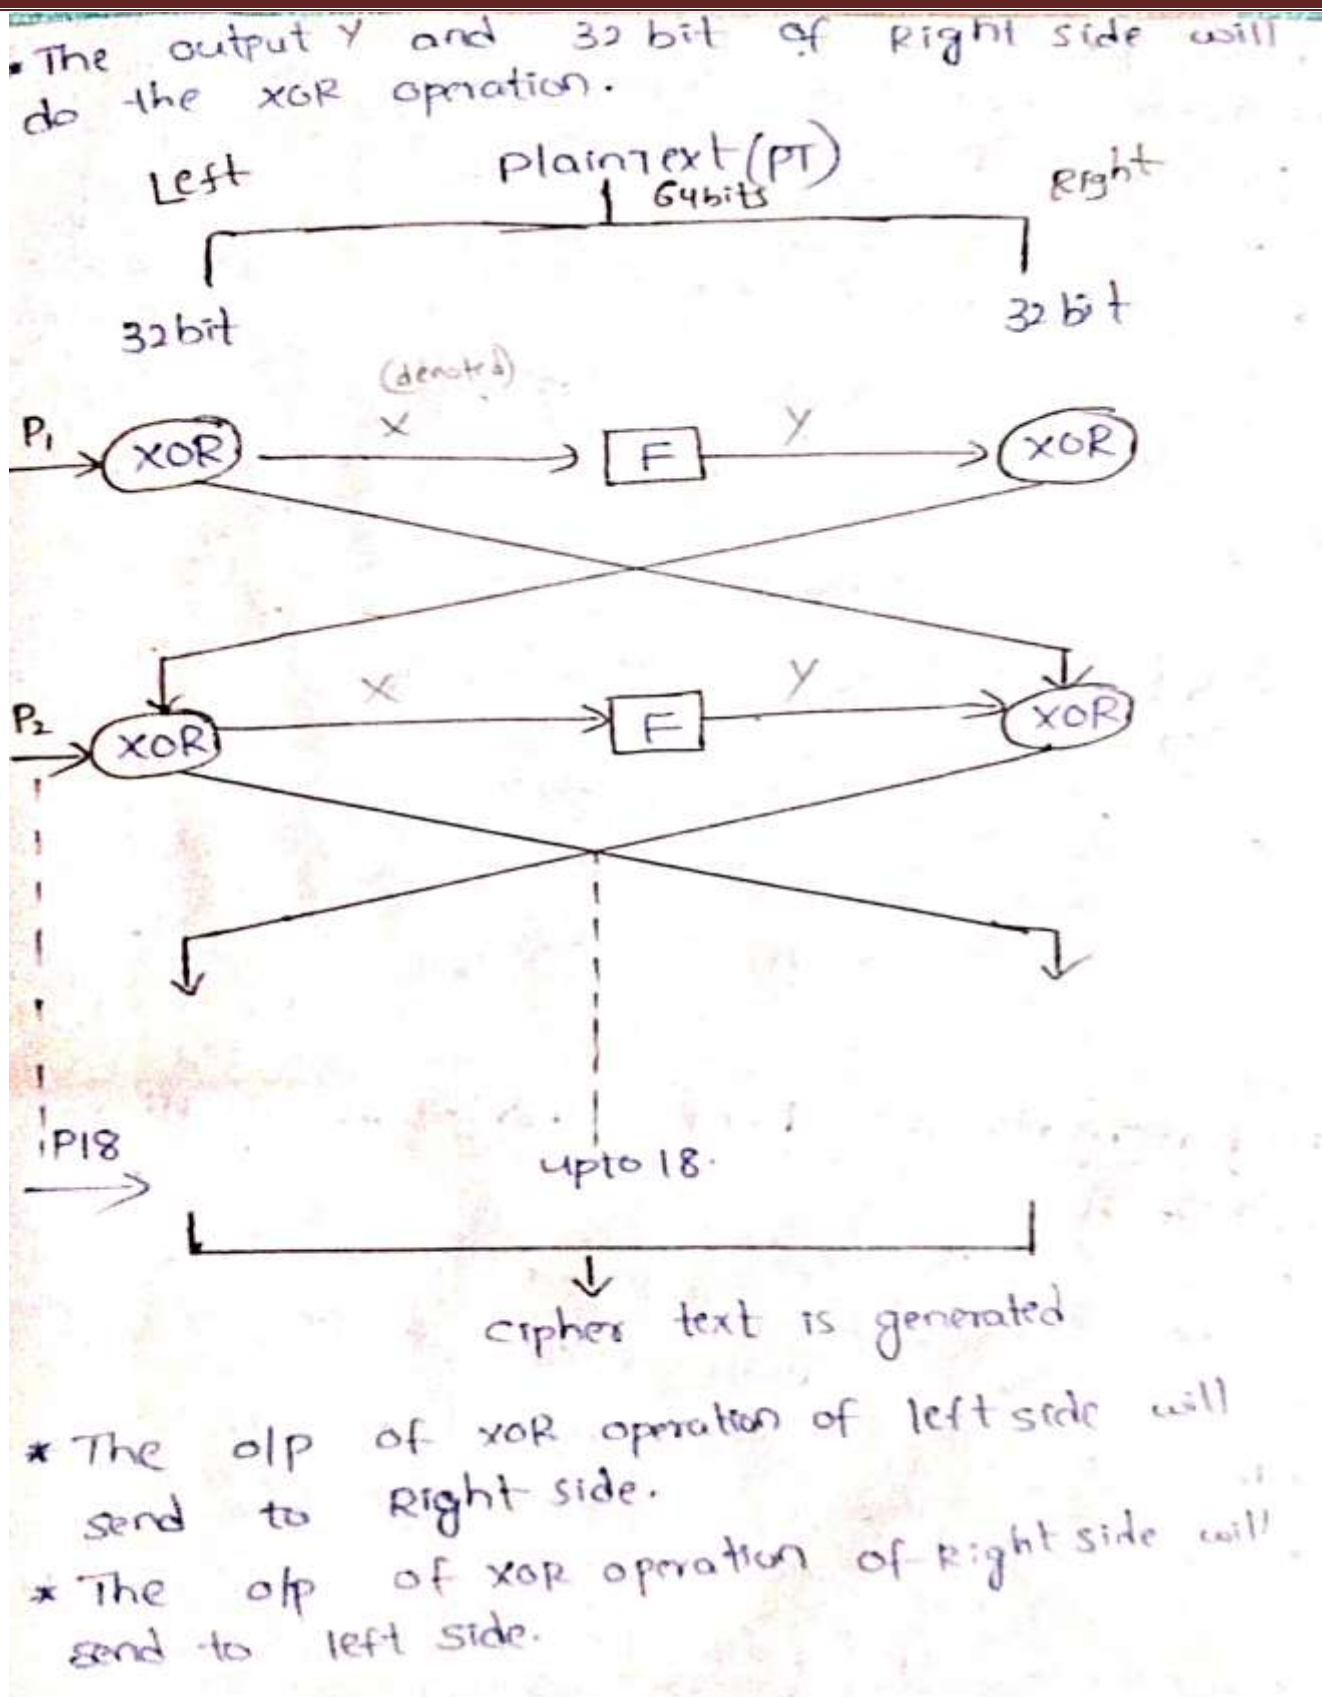 • The output Y and 32 bit of Right side will
do the XOR operation.
Left PlainText (PT) Right
64bits
32bit 32 bit
(denoted)
P1 XOR X F Y XOR
P2 XOR X F Y XOR
P18
upto 18.
cipher text is generated
* The o/p of XOR operation of left side will
send to Right side.
* The o/p of XOR operation of Right side will
send to left side.